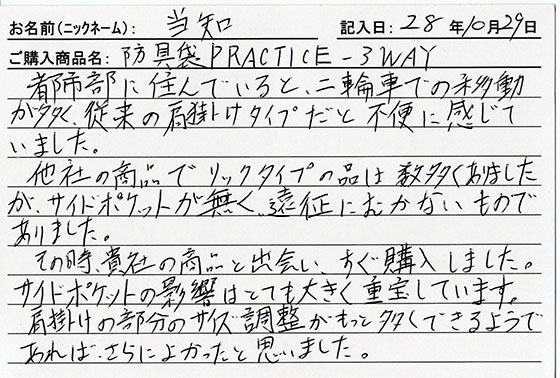 お名前(ニックネーム): 当知 記入日: 28 年10月29日
ご購入商品名: 防具袋PRACTICE-3WAY
都市部に住んでいると、二輪車での移動
が多く、従来の肩掛けタイプだと不便に感じて
いました。
他社の商品でリックタイプの品は数多くありました
が、サイドポケットが無く、遠征にむかないもので
ありました。
その時、貴社の商品と出会い、すぐ購入しました。
サイドポケットの影響はとても大きく重宝しています。
肩掛けの部分のサイズ調整がもっと多くできるようで
あれば、さらによかったと思いました。